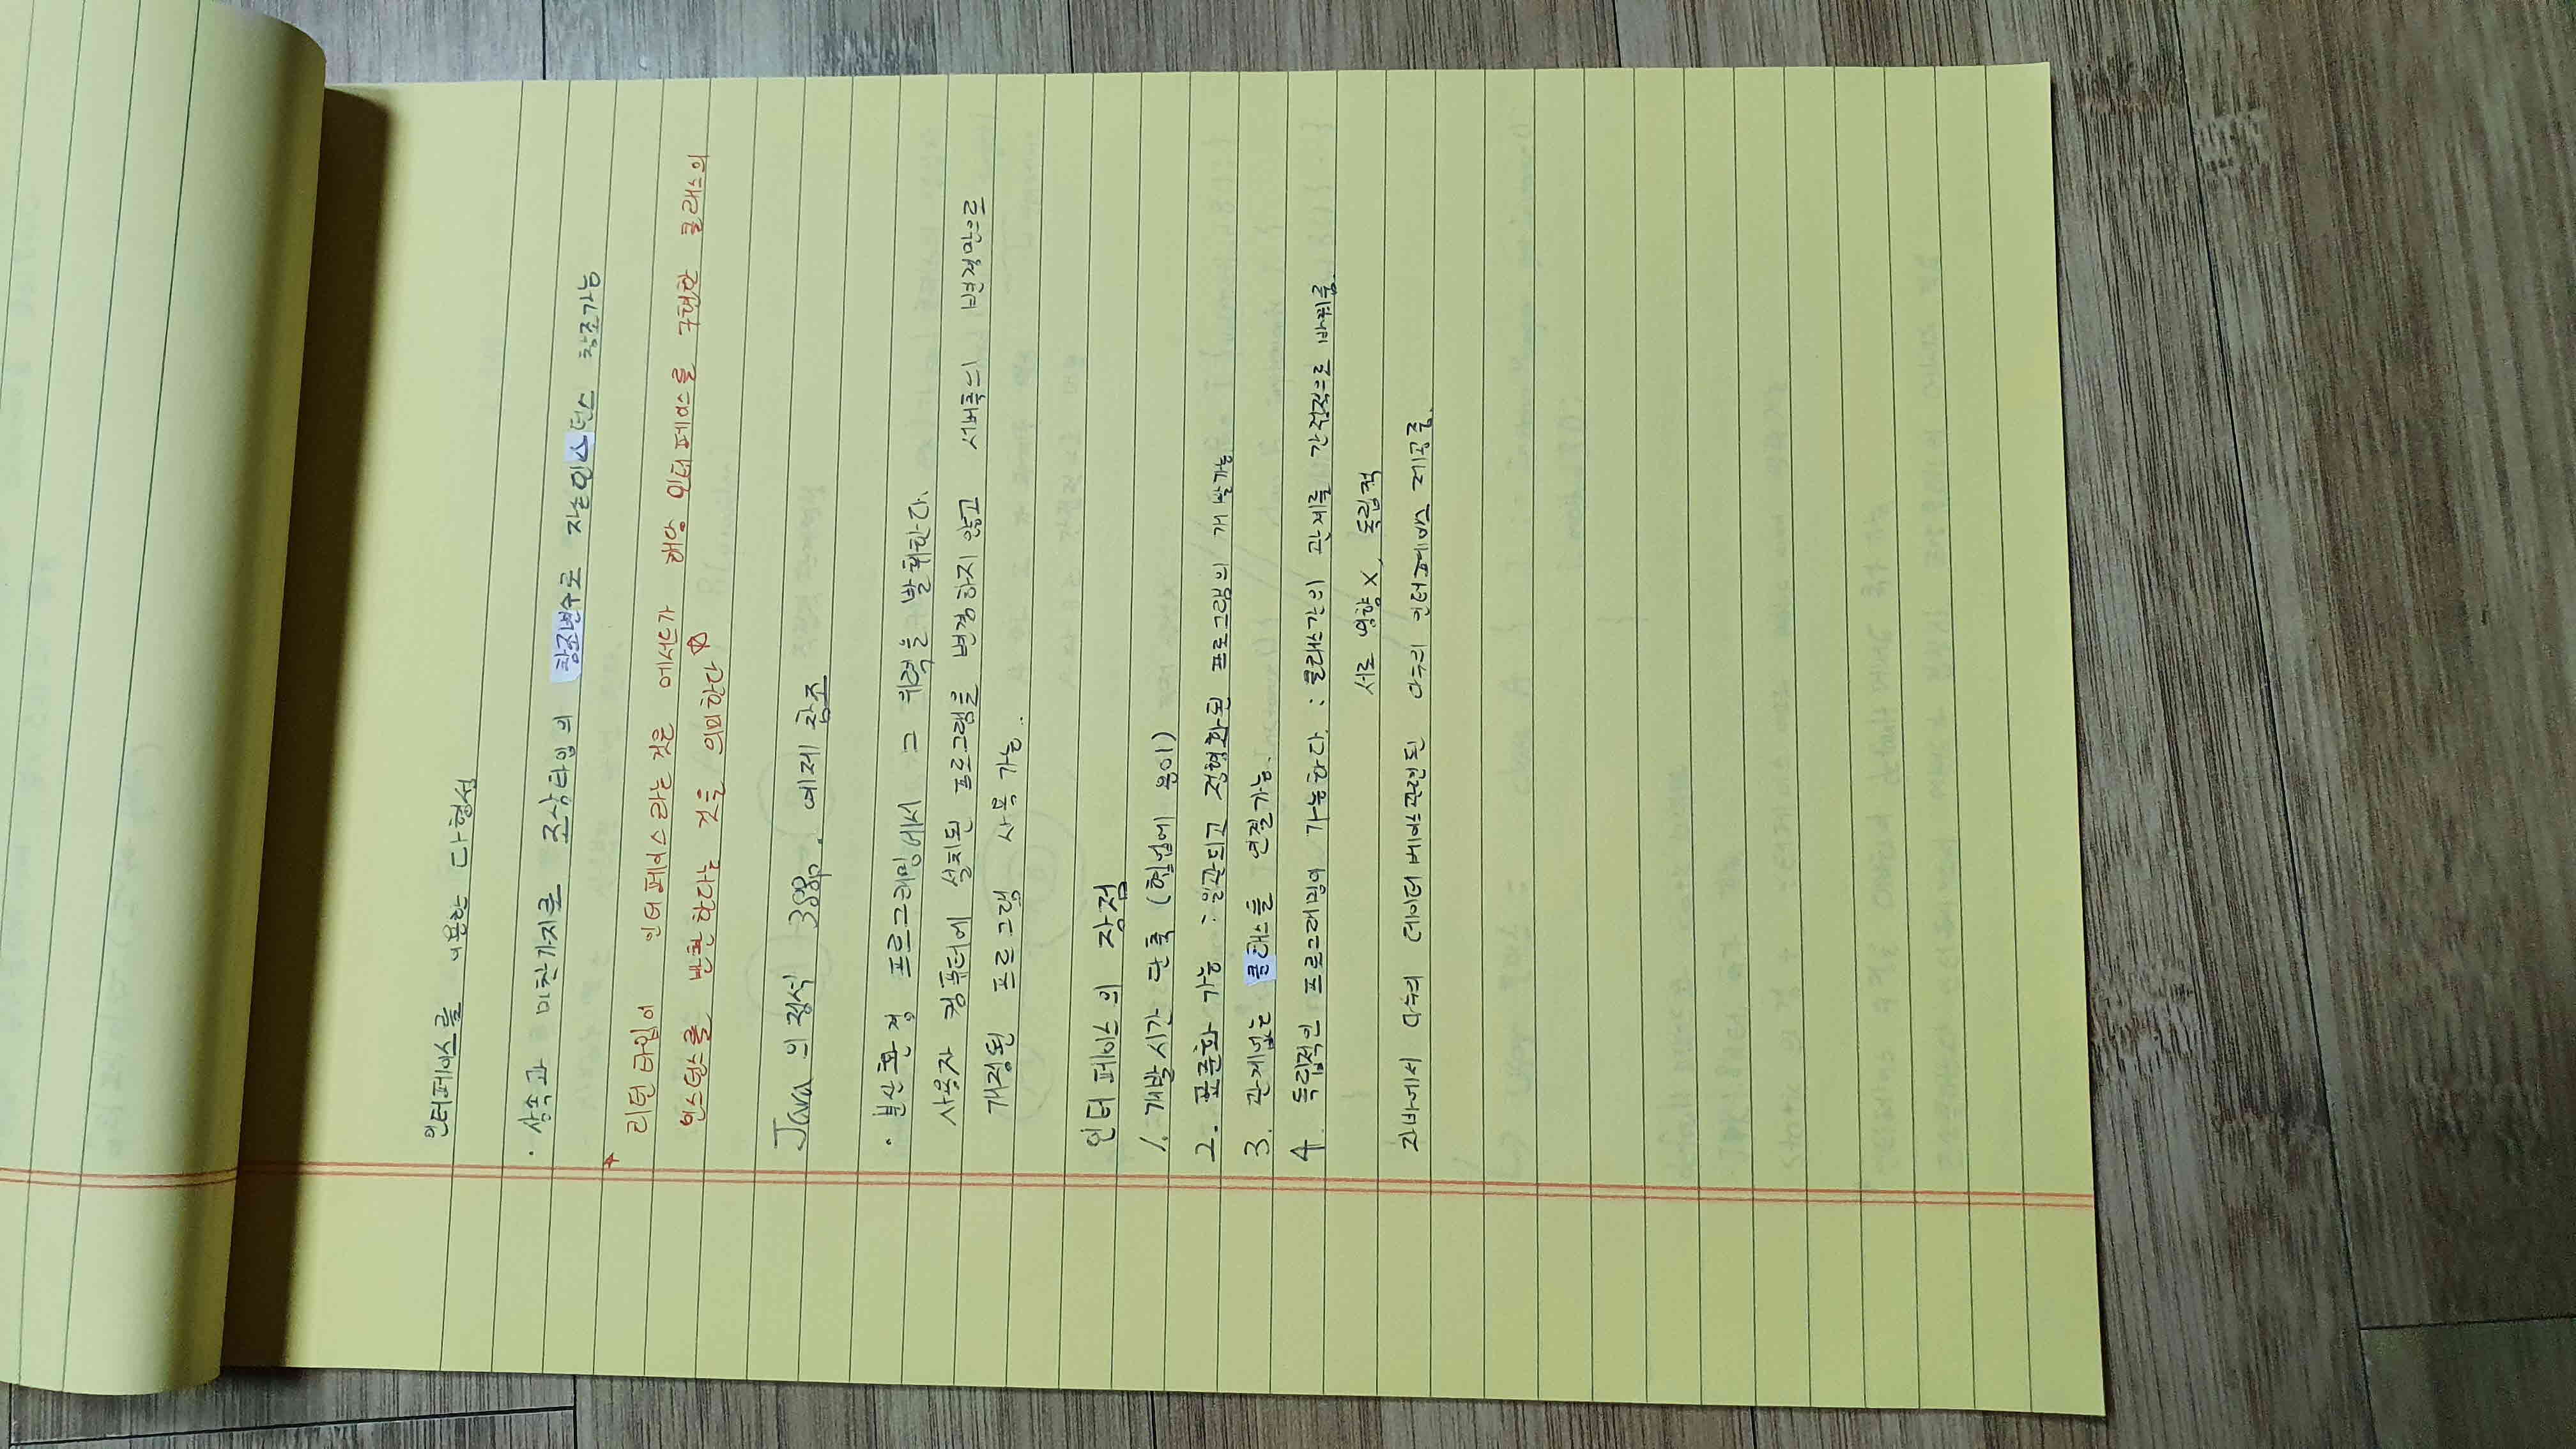 인터페이스를 이용한 다형성
· 상속과 마찬가지로 조상타입의 참조변수로 자손인스턴스 참조가능
리턴타입이 인터페이스라는 것은 메서드가 해당 인터페이스를 구현한 클래스의
인스턴스를 반환한다는 것을 의미한다
Java의 정석 388p. 예제 참조
· 분산환경 프로그래밍에서 그 위력을 발휘한다.
사용자 컴퓨터에 설치된 프로그램을 변경하지 않고 서버측의 변경만으로
개정된 프로그램 사용 가능.
인터페이스의 장점
1. 개발시간 단축 (협업에 용이)
2. 표준화 가능 : 일관되고 정형화된 프로그램의 개발가능
3. 관계없는 클래스들 연결가능.
4. 독립적인 프로그래밍이 가능하다. : 클래스간의 관계를 간접적으로 바꿔줌.
서로 영향 X, 독립적
자바에서 다수의 데이터베이스관련된 다수의 인터페이스 제공중.